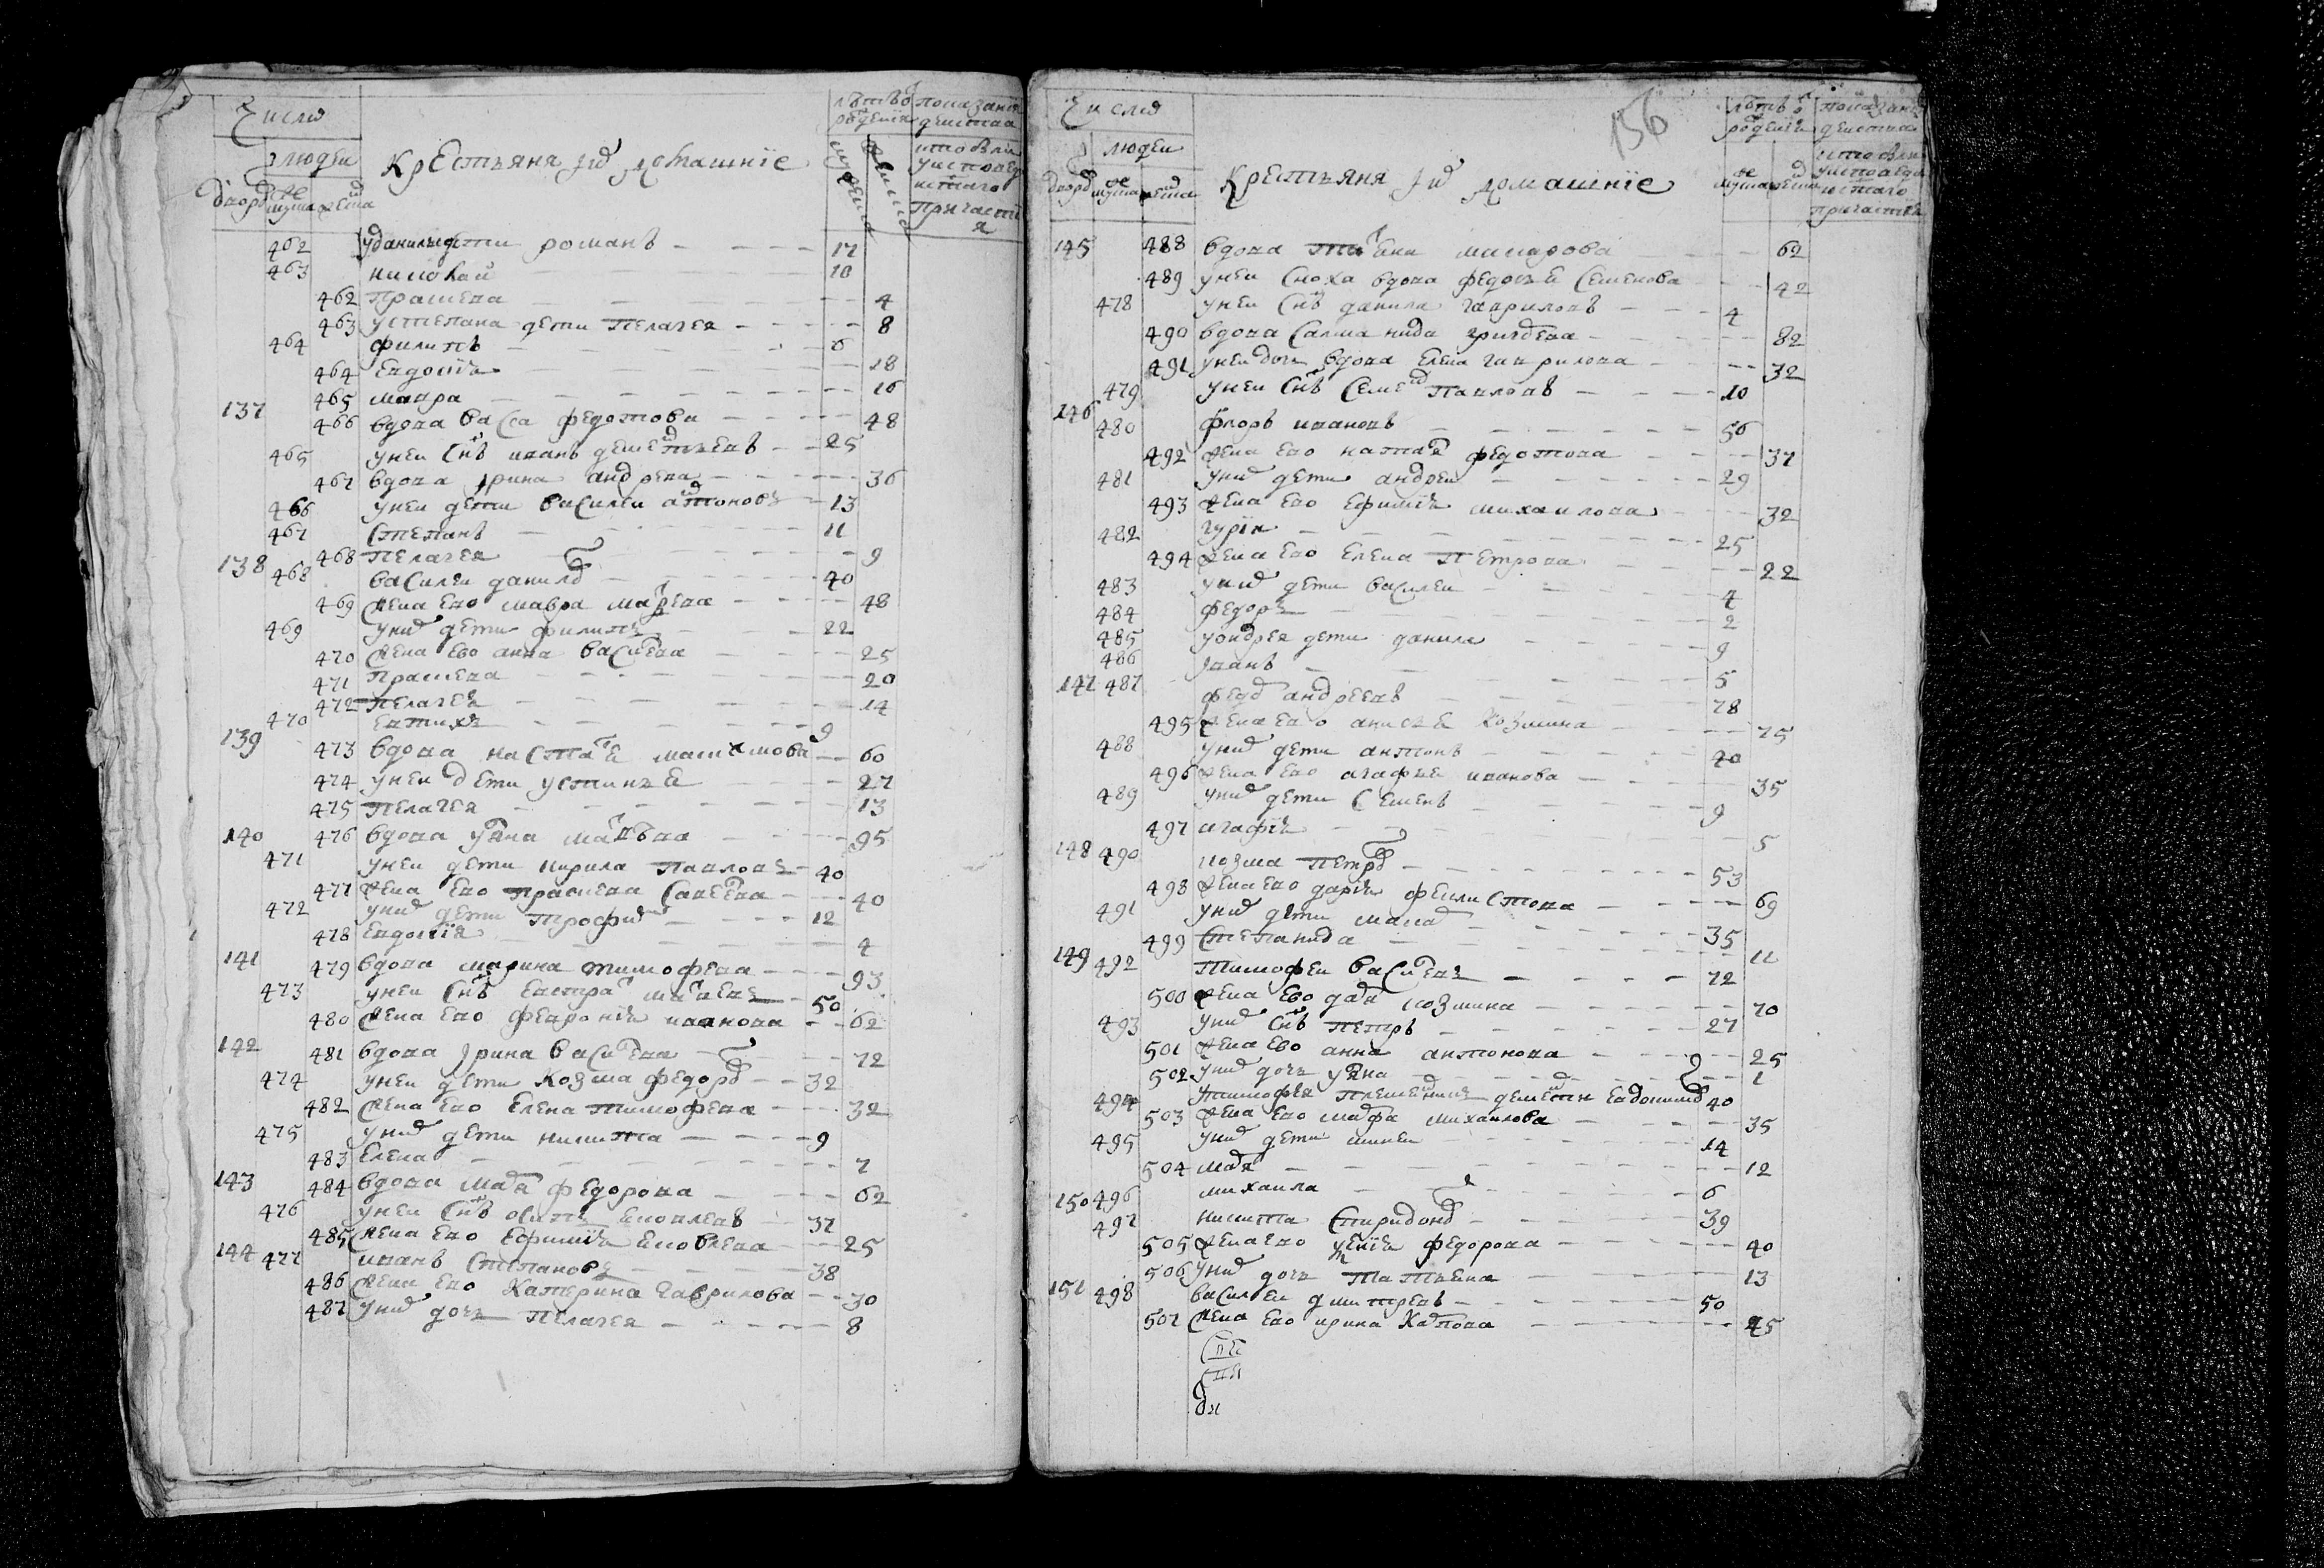 Число
людей
Крестьяня и домашние
лет от рождения
показание действа
двор
мужеска
женска
кто был у исповеди и святаго причастия
462 у данилы дети романъ 17
463 николай 10
462 прасковя 4
463 у степана дети пелагея 8
464 филипъ 6
464 евдокия 18
465 мавра 16
137 466 вдова васа федотова 48
465 у неи снъ иванъ дементьевъ 25
467 вдова ирина андреева 36
466 у неи дети василеи антоновъ 13
467 степанъ 11
468 пелагея 9
138 468 василеи данилов 40
469 жена ево мавра 48
469 у них дети филипъ 22
470 жена ево анна василева 25
471 прасковя 20
472 пелагея 14
470 евтихъ 9
139 473 вдова настася максимова 60
474 у неи дети устинья 27
475 пелагея 13
140 476 вдова уляна матвѣва 95
471 у неи дети кирила павловъ 40
477 жена ево прасковя савелева 40
472 у них дети трофим 12
478 евдокия 4
141 479 вдова марина тимофева 93
473 у неи снъ евстрат 50
480 жена ево феврония иванова 62
142 481 вдова ирина василева 72
474 у неи дети козма федоров 32
482 жена ево елена тимофева 32
475 у них дети никита 9
483 елена 7
143 484 вдова маря федорова 62
476 у неи снъ осипъ яковлевъ 37
485 жена ево ефимия яковлева 25
144 477 иванъ степановъ 38
486 жена ево катерина гаврилова 30
487 у них дочь пелагея 8
156
Число
людеи
Крестьяня и домашние
лет от рождения
показание действа
двор
мужеска
женска
кто был у исповеди и святаго причастия
145 488 вдова татяна макарова 62
489 у неи сноха вдова федосья семенова 42
478 у неи снъ данила гавриловъ 4
490 вдова саламанида 82
491 у неи дочь вдова елена гаврилова 32
479 у неи снъ семен павловъ 10
146 480 флоръ ивановъ 56
492 жена ево наталя федотова 37
481 у них дети андреи 29
493 жена ево ефимия михаилова 32
482 гурiи 25
494 жена ево елена петрова 22
483 у них дети василеи 4
484 федоръ 2
485 у ондрея дети данила 9
486 иванъ 5
147 487 федор андреевъ 78
495 жена ево анисья козмина 75
488 у них дети антонъ 40
496 жена ево агафья иванова 35
489 у них дети семенъ 9
497 агафия 5
148 490 козма петров 53
498 жена ево дария феклистова 69
491 у них дети макар 35
499 степанида 11
149 492 тимофеи василевъ 72
500 жена ево даря козмина 70
493 у них снъ петръ 27
501 жена ево анна антонова 25
502 у них дочь уляна 1
494 у тимофея племенник дементеи евдокимов 40
503 жена ево марфа михаилова 35
495 у них дети минеи 14
504 маря 12
150 496 михаила 6
497 никита спиридонов 39
505 жена ево ксения федорова 40
506 у них дочь татьяна 13
151 498 василеи дмитревъ 50
507 жена ево ирина карпова 45